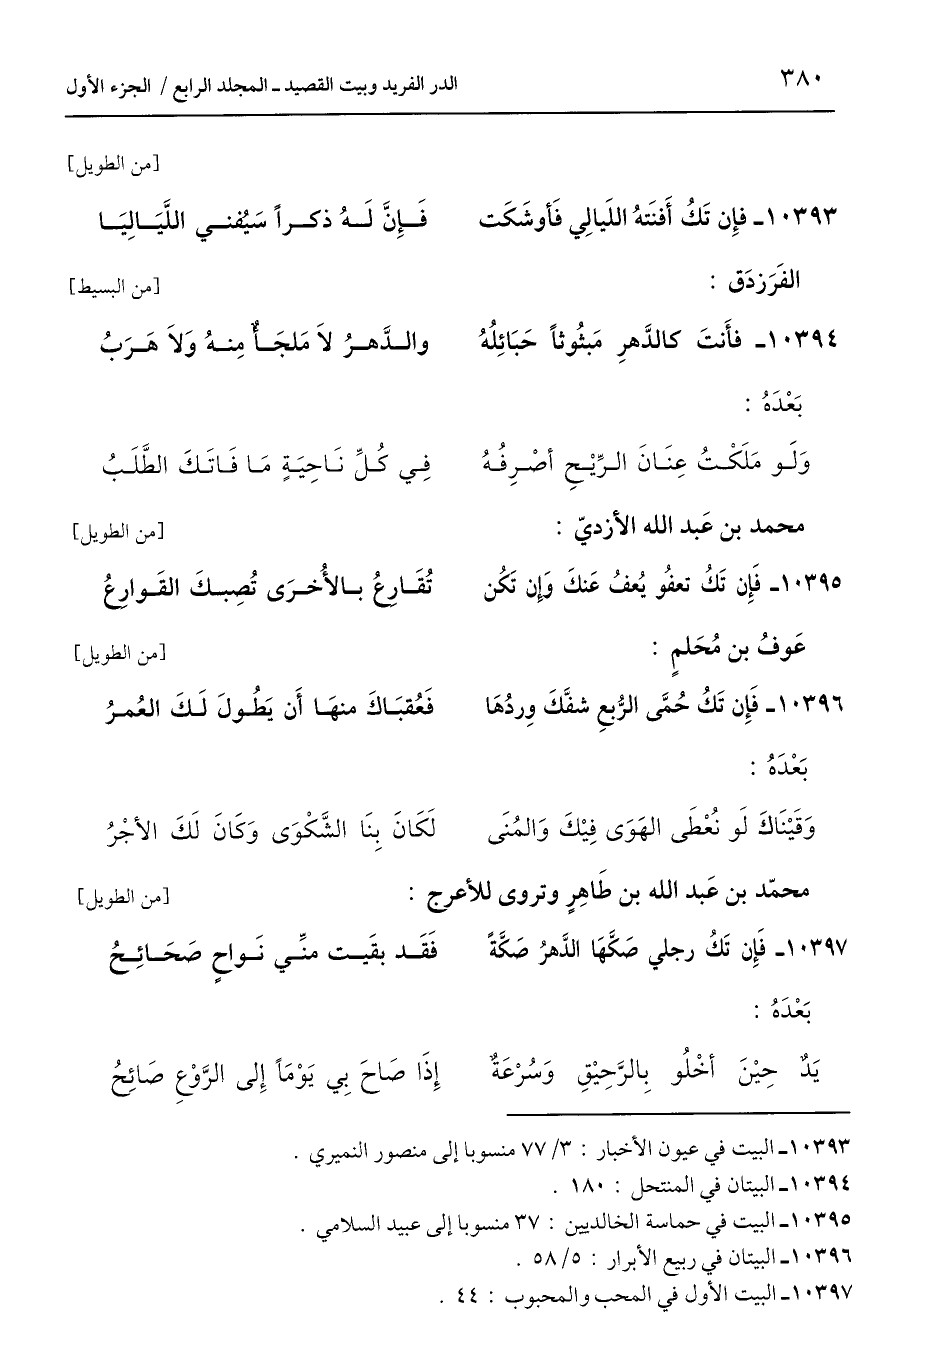 ٣٨٠ الدر الفريد وبيت القصيد ـ المجلد الرابع / الجزء الأول
[من الطويل]
١٠٣٩٣ـ فإِن تَكُ أَفنَتهُ اللَيالِي فَأوشَكَت فَـإِنَّ لَـهُ ذكـراً سَيُفنـي اللَّيَـالِيَـا
الفَرَزدَق : [من البسيط]
١٠٣٩٤ـ فأَنتَ كالدَّهرِ مَبثُوثاً حَبَائلُهُ والـدَّهـرُ لاَ مَلجَـأٌ مِنـهُ وَلاَ هَـرَبُ
بَعْدَهُ :
وَلَو مَلَكْتُ عِنَانَ الرِّيْحِ أصْرِفُهُ فِي كُلِّ نَاحِيَةٍ مَا فَاتَكَ الطَّلَبُ
محمد بن عَبد الله الأزديّ : [من الطويل]
١٠٣٩٥ـ فَإِن تَكُ تعفُو يُعفُ عَنكَ وَإِن تَكُن تُقَـارِعُ بـالأُخـرَى تُصِبـكَ القَـوارِعُ
عَوفُ بن مُحَلمٍ : [من الطويل]
١٠٣٩٦ـ فَإِن تَكُ حُمَّى الرُّبعِ شفَّكَ وِردُهَا فَعُقبَـاكَ منهَـا أَن يَطُـولَ لَـكَ العُمـرُ
بَعْدَهُ :
وَقَيْنَاكَ لَو نُعْطَى الهَوَى فِيْكَ وَالمُنَى لَكَانَ بِنَا الشَّكْوَى وَكَانَ لَكَ الأجْرُ
محمّد بن عَبد الله بن طَاهِرٍ وتروى للأعرج : [من الطويل]
١٠٣٩٧ـ فَإِن تَكُ رجلي صَكَّهَا الدَّهرُ صَكَّةً فَقَـد بقَيـت منِّـي نَـواحٍ صَحَـائِـحُ
بَعْدَهُ :
يَدٌ حِيْنَ أخْلُو بِالرَّحِيْقِ وَسُرْعَةٌ إِذَا صَاحَ بِي يَوْمَاً إلى الرَّوْعِ صَائِحُ
١٠٣٩٣ـ البيت في عيون الأخبار : ٣/ ٧٧ منسوبا إلى منصور النميري .
١٠٣٩٤ـ البيتان في المنتحل : ١٨٠ .
١٠٣٩٥ـ البيت في حماسة الخالديين : ٣٧ منسوبا إلى عبيد السلامي .
١٠٣٩٦ـ البيتان في ربيع الأبرار : ٥/ ٥٨ .
١٠٣٩٧ـ البيت الأول في المحب والمحبوب : ٤٤ .